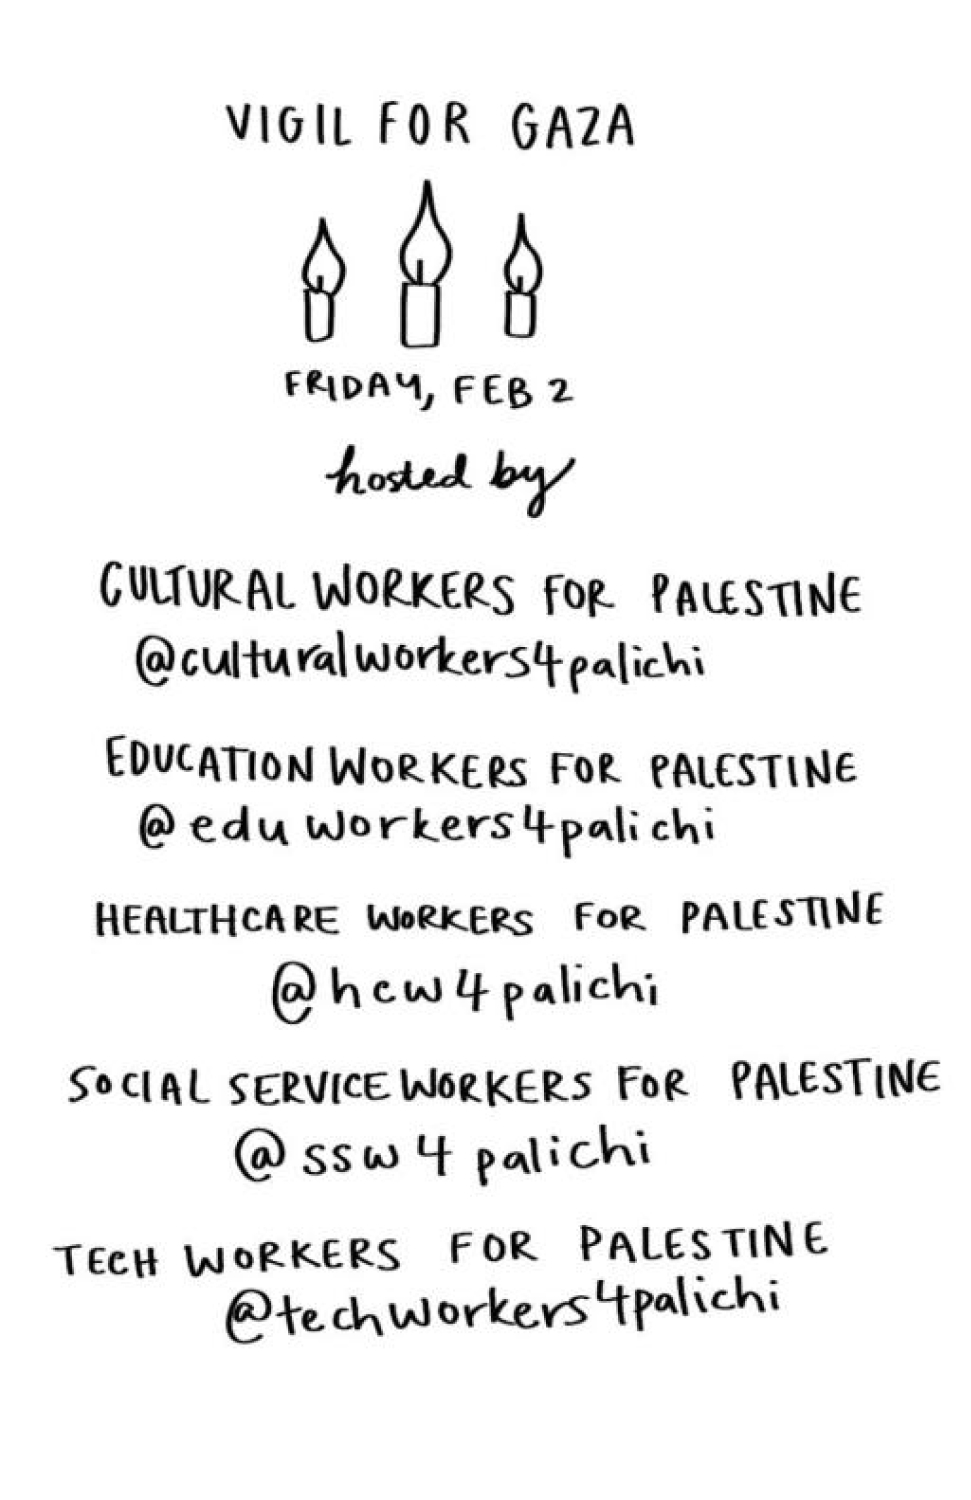 VIGIL FOR GAZA
FRIDAY, FEB 2
hosted by
CULTURAL WORKERS FOR PALESTINE
@culturalworkers4palichi
EDUCATION WORKERS FOR PALESTINE
@eduworkers4palichi
HEALTHCARE WORKERS FOR PALESTINE
@hcw4palichi
SOCIAL SERVICE WORKERS FOR PALESTINE
@ssw4palichi
TECH WORKERS FOR PALESTINE
@techworkers4palichi